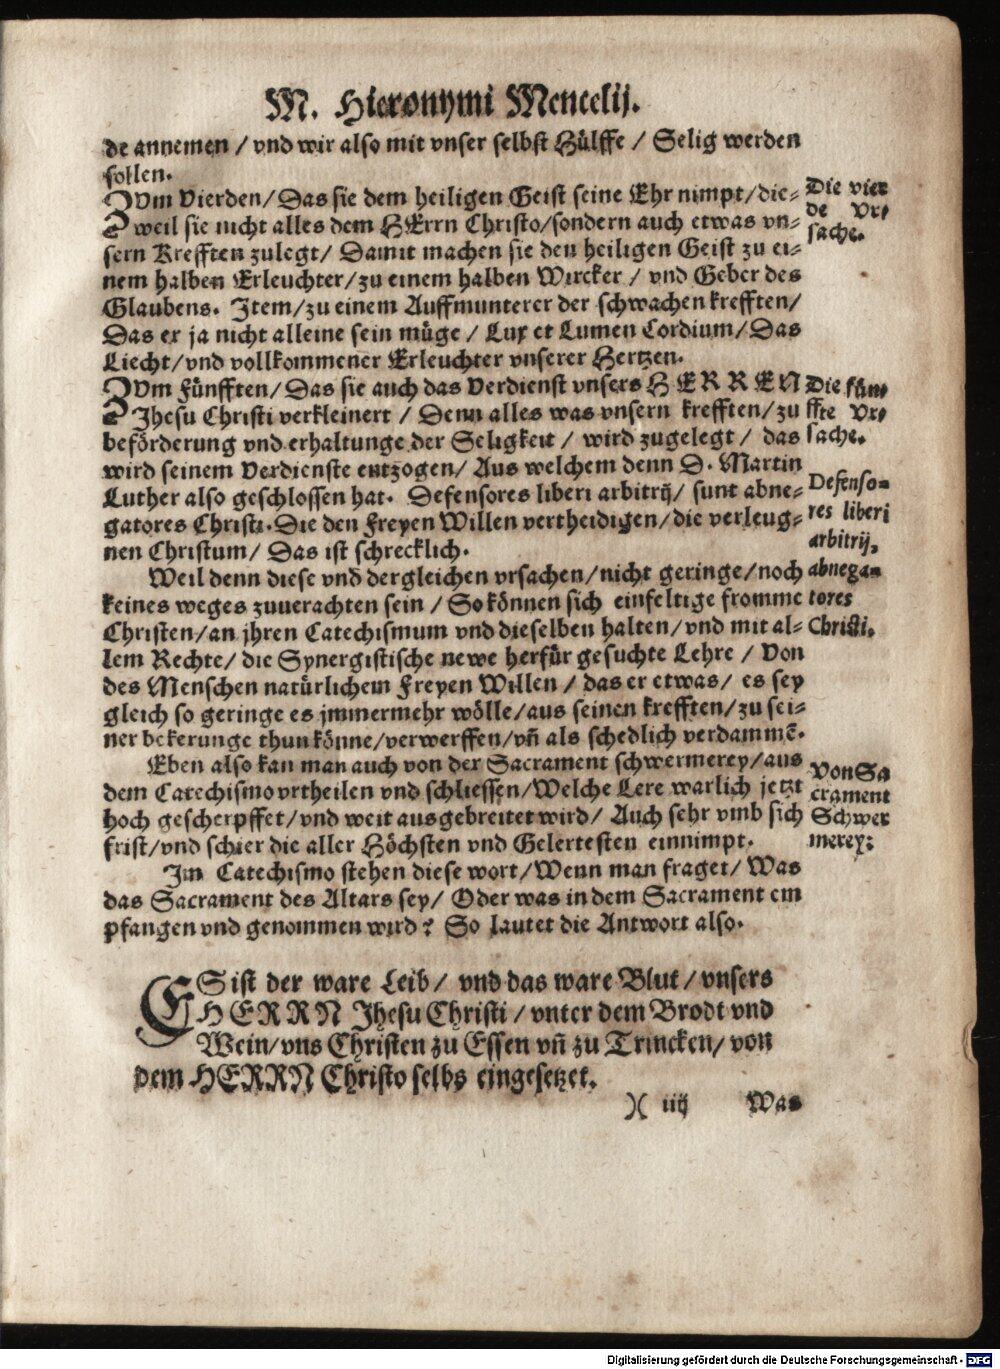 M. Hieronymi Mencelij.
de annemen / vnd wir also mit vnser selbst Hülffe / Selig werden
sollen.
ZVm Vierden / Das sie dem heiligen Geist seine Ehr nimpt / die-
weil sie nicht alles dem HErrn Christo / sondern auch etwas vn-
sern Krefften zulegt / Damit machen sie den heiligen Geist zu ei-
nem halben Erleuchter / zu einem halben Wircker / vnd Geber des
Glaubens. Item / zu einem Auffmunterer der schwachen krefften /
Das er ja nicht alleine sein müge / Lux et Lumen Cordium / Das
Liecht / vnd vollkommener Erleuchter vnserer Hertzen.
Die vier
de Vr-
sache.
ZVm Fünfften / Das sie auch das Verdienst vnsers HERREN
Jhesu Christi verkleinert / Denn alles was vnsern krefften / zu
beförderung vnd erhaltunge der Seligkeit / wird zugelegt / das
wird seinem Verdienste entzogen / Aus welchem denn D. Martin
Luther also geschlossen hat. Defensores liberi arbitrij / sunt abne-
gatores Christi. Die den Freyen Willen vertheidigen / die verleug-
nen Christum / Das ist schrecklich.
Die fün-
ffte Vr-
sache.
Defenso-
res liberi
arbitrij,
abnega-
tores
Christi.
Weil denn diese vnd dergleichen vrsachen / nicht geringe / noch
keines weges zuuerachten sein / So können sich einfeltige fromme
Christen / an jhren Catechismum vnd dieselben halten / vnd mit al-
lem Rechte / die Synergistische newe herfür gesuchte Lehre / Von
des Menschen natürlichem Freyen Willen / das er etwas / es sey
gleich so geringe es jmmermehr wölle / aus seinen krefften / zu sei-
ner bekerunge thun könne / verwerffen / vñ als schedlich verdammē.
Eben also kan man auch von der Sacrament schwermerey / aus
dem Catechismo vrtheilen vnd schliessen / Welche Lere warlich jetzt
hoch gescherpffet / vnd weit ausgebreitet wird / Auch sehr vmb sich
frist / vnd schier die aller Höchsten vnd Gelertesten einnimpt.
Von Sa
crament
Schwer
merey:
Im Catechismo stehen diese wort / Wenn man fraget / Was
das Sacrament des Altars sey / Oder was in dem Sacrament em
pfangen vnd genommen wird? So lautet die Antwort also.
ES ist der ware Leib / vnd das ware Blut / vnsers
HERRN Jhesu Christi / vnter dem Brodt vnd
Wein / vns Christen zu Essen vñ zu Trincken / von
dem HERRN Christo selbs eingesetzet.
)( iij Was
Digitalisierung gefördert durch die Deutsche Forschungsgemeinschaft - DFG